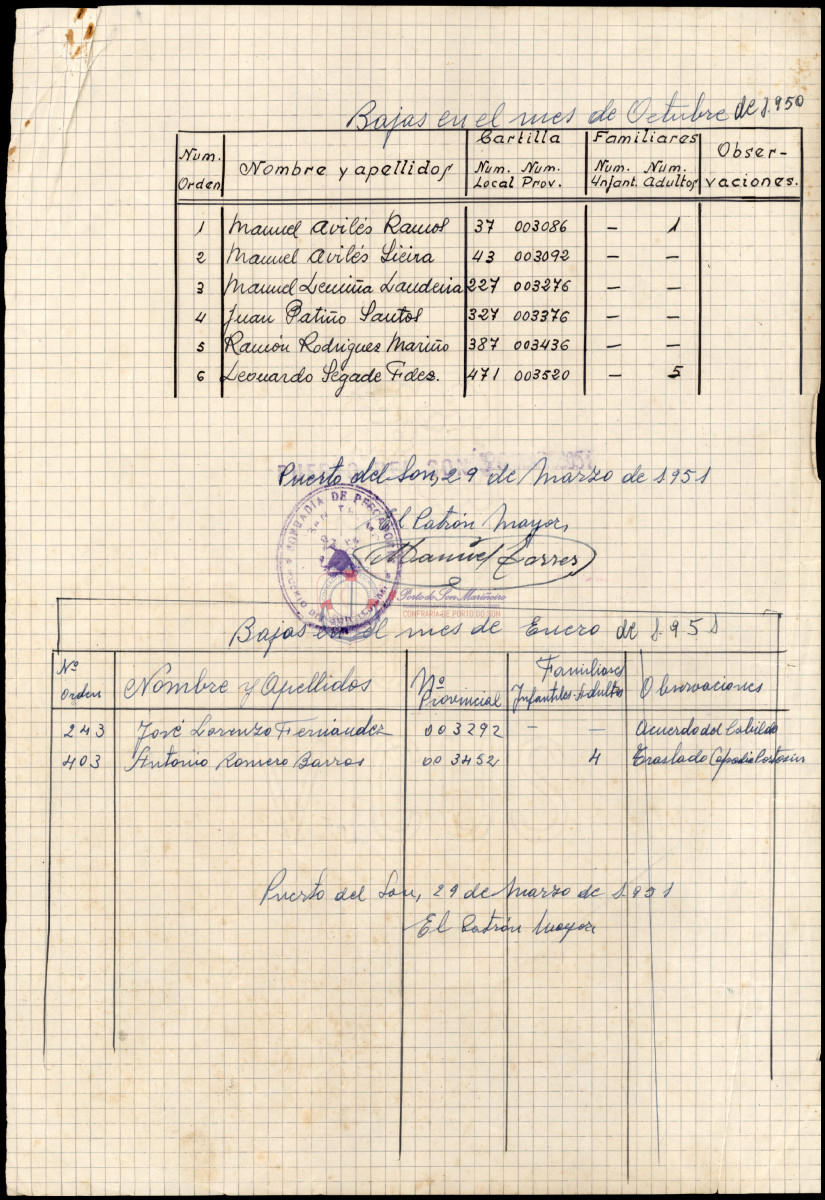 Bajas en el mes de Octubre de 1.950
Num. Orden Nombre y apellidos Cartilla Num. Local Num. Prov. Familiares Num. Ynfant. Num. Adultos Obser-vaciones.
1 Manuel Avilés Ramos 37 003086 - 1
2 Manuel Avilés Lieira 43 003092 - -
3 Manuel Lemiña Landeira 227 003276 - -
4 Juan Patiño Santos 327 003376 - -
5 Ramón Rodriguez Mariño 387 003436 - -
6 Leonardo Segade Fdez. 471 003520 - 5
Puerto del Son, 29 de Marzo de 1951
El Patrón Mayor,
Manuel Torres
COFRADIA DE PESCADORES
Porto do Son Mariñeiro
CONFRARIA DE PORTO DO SON
Bajas en el mes de Enero de 1.951
Nº Orden Nombre y Apellidos Nº Provincial Familiares Infantiles-Adultos Observaciones
243 José Lorenzo Fernández 003292 - - Acuerdo del Cabildo
403 Antonio Romero Barros 003452 4 Traslado Portosin
Puerto del Son, 29 de Marzo de 1.951
El Patrón Mayor